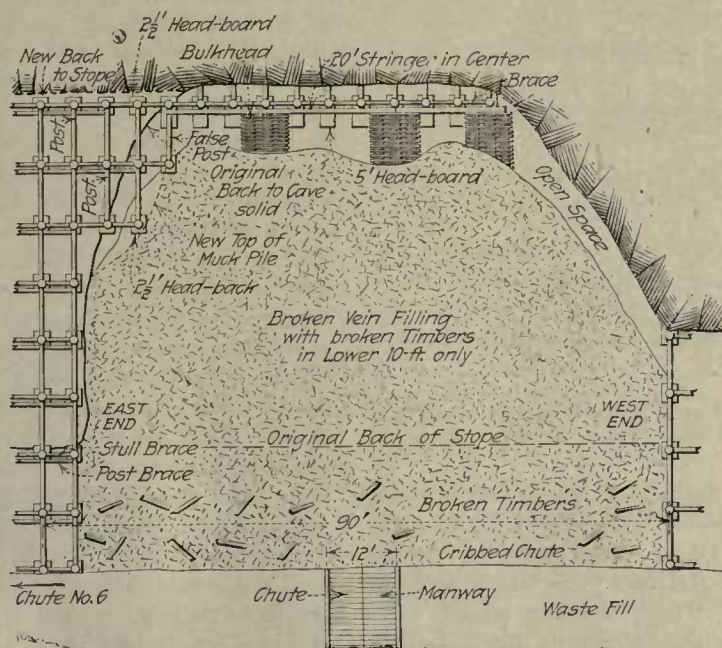 2½' Head-board
Bulkhead
20' Stringer in Center
New Back
to Stope
Brace
Post
False
Post
Original
Back to Cave
solid
5' Head-board
Open Space
Post
New Top of
Muck Pile
2½' Head-back
Broken Vein Filling
with broken Timbers
in Lower 10-ft. only
EAST
END
WEST
END
Original Back of Stope
Stull Brace
Post Brace
Broken Timbers
90'
12'
Cribbed Chute
Chute No.6
Chute
Manway
Waste Fill